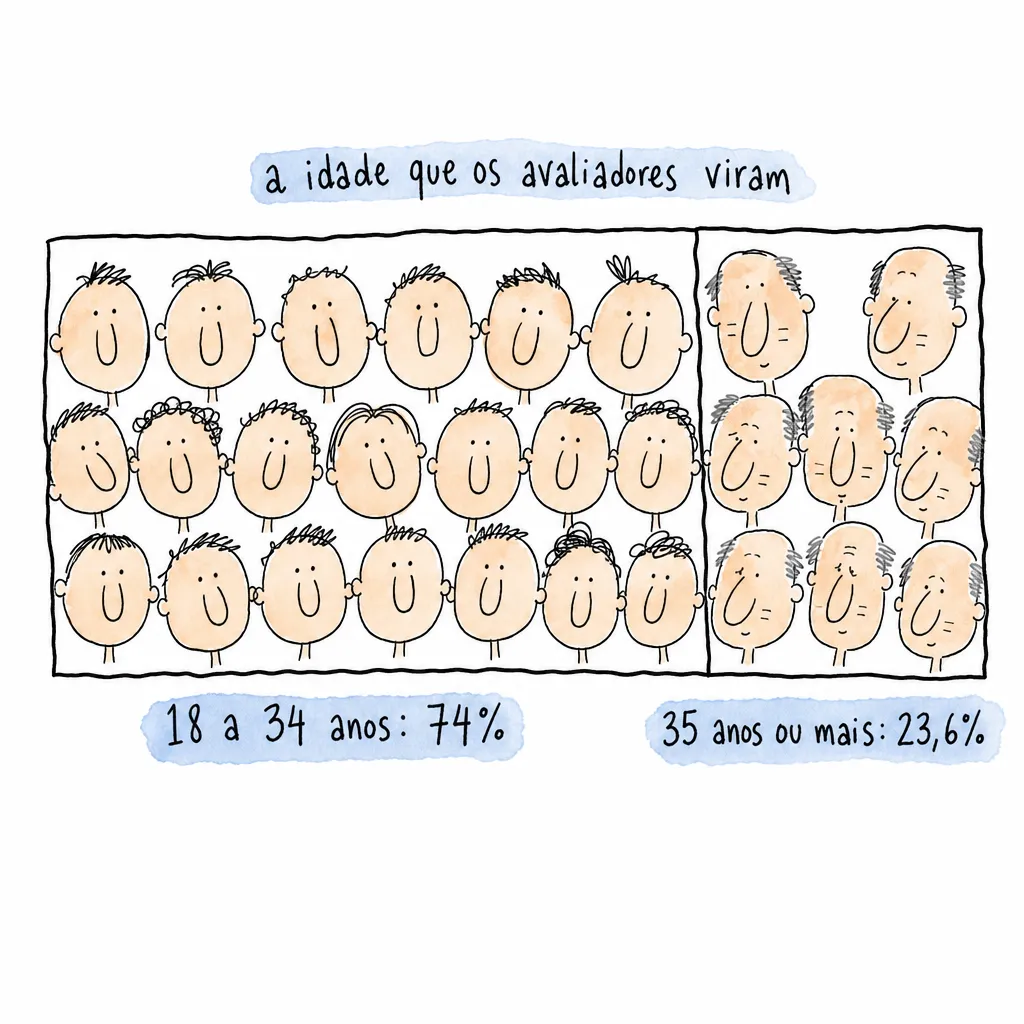 a idade que os avaliadores viram
18 a 34 anos: 74%
35 anos ou mais: 23,6%